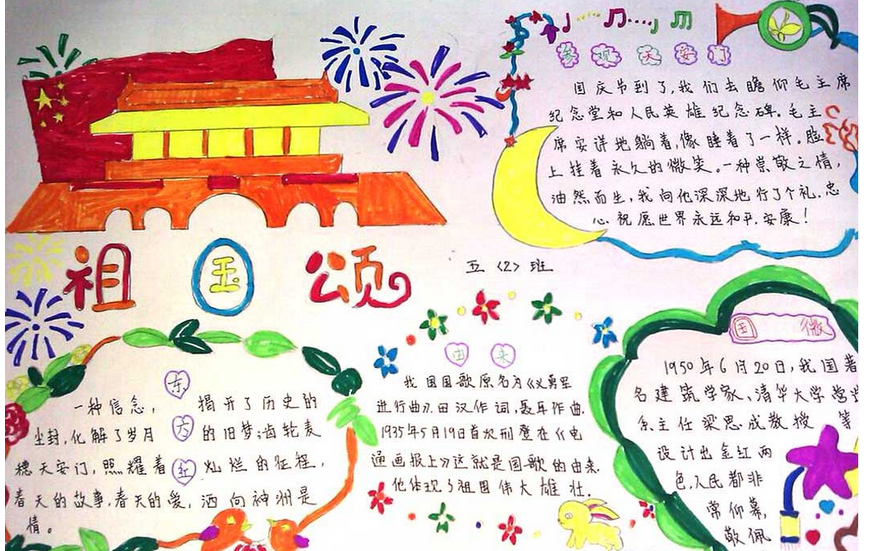 参观天安门
国庆节到了,我们去瞻仰毛主席
纪念堂和人民英雄纪念碑。毛主
席安详地躺着,像睡着了一样。脸
上挂着永久的微笑。一种崇敬之情,
油然而生,我向他深深地行了个礼。忠
心祝愿世界永远和平,安康!
祖国颂
五〈2〉班
东方红
一种信念, 揭开了历史的
尘封,化解了岁月 的旧梦;齿轮表
穗天安门,照耀着 灿烂的征程,
春天的故事,春天的爱, 洒向神洲是
情。
由来
我国国歌原名为《义勇军
进行曲》。田汉作词,聂耳作曲.
1935年5月19日首次刊登在《电
通画报上》这就是国歌的由来.
他体现了祖国伟大雄壮.
国 徽
1950年6月20日,我国著
名建筑学家、清华大学营
系主任梁思成教授 等
设计出金红两
色,人民都非
常仰慕,
敬佩